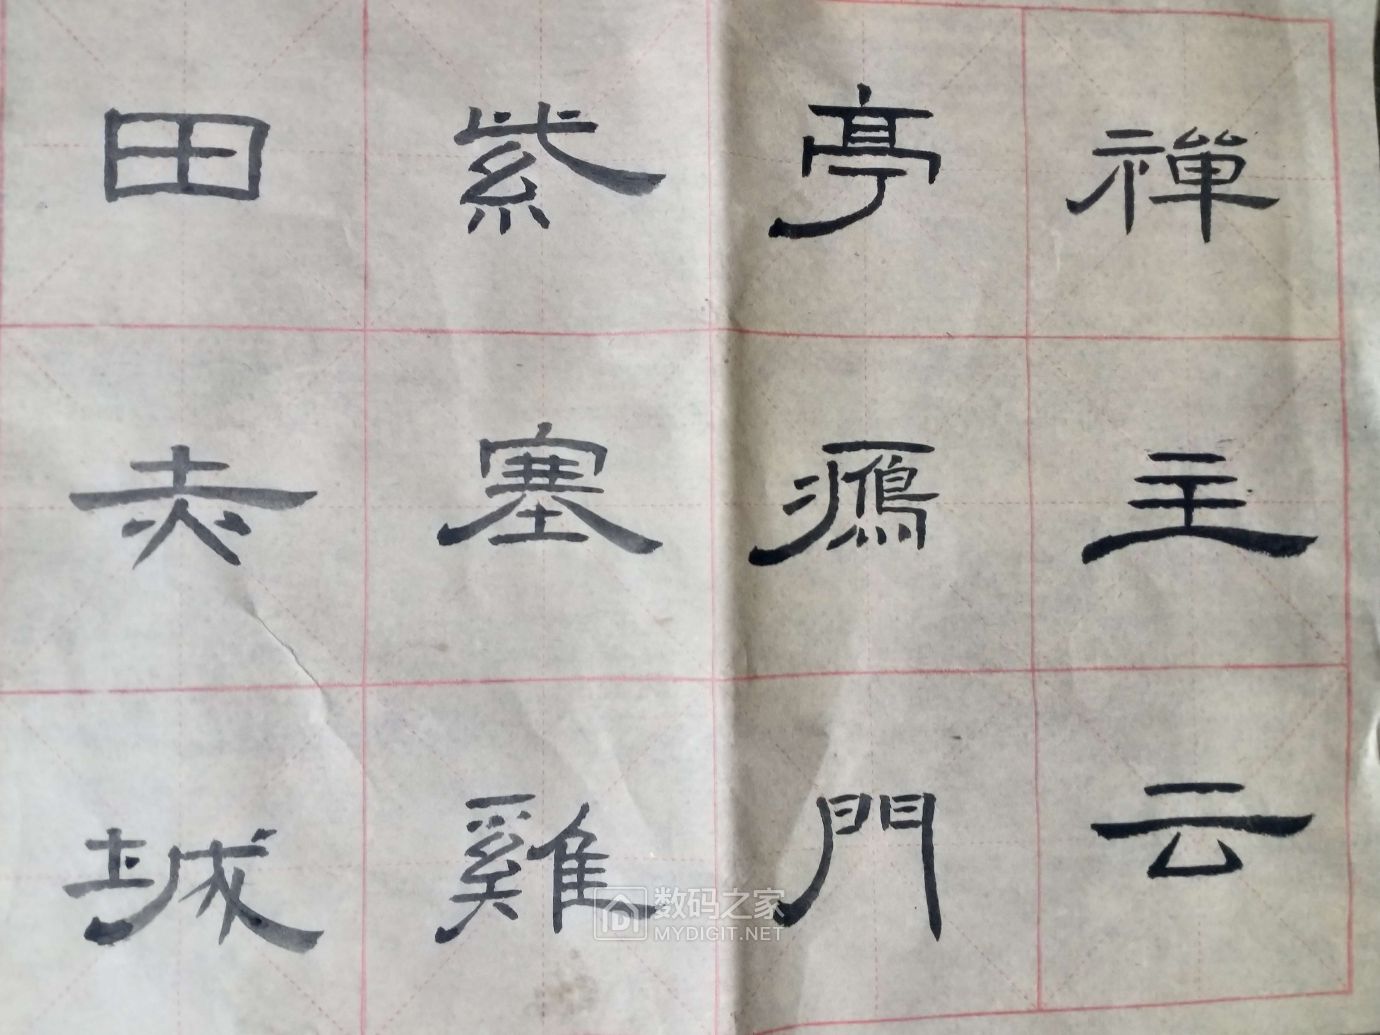 禪主云
亭鴈門
紫塞雞
田赤城
数码之家
MYDIGIT.NET